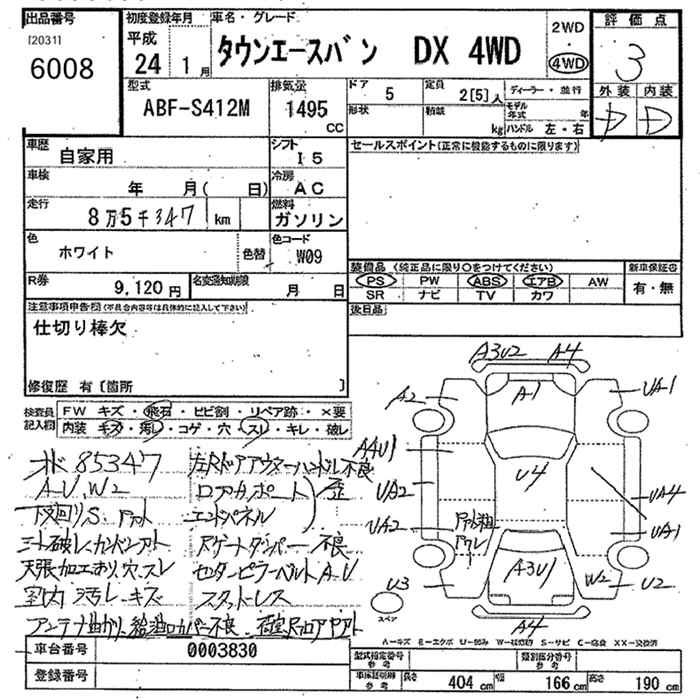 出品番号 初度登録年月 車名・グレード 評価点
[2031] 平成 タウンエースバン DX 4WD 2WD ・ 4WD 3
6008 24 1月 外装 内装
型式 排気量 ドア 定員 ディーラー・並行 D D
ABF-S412M 1495 CC 5 2[5]人
形状 積載 kg モデル年式 年
ハンドル 左・右
車歴 自家用 シフト I5 セールスポイント(正常に機能するものに限ります)
車検 年 月( 日) 冷房 AC
走行 8万5千347 km 燃料 ガソリン
色 ホワイト 色替 色コード W09
装備品 (純正品に限り○をつけてください) 新車保証書
R券 9,120円 名変通知期限 月 日 PS PW ABS エアB AW 有・無
SR ナビ TV カワ
注意事項申告欄(不具合内容等は具体的に記入して下さい) 後日品
仕切り棒欠
修復歴 有[箇所 ]
検査員記入欄 FW キズ・飛石・ヒビ割・リペア跡・×要
内装 キズ・汚レ・コゲ・穴・スレ・キレ・破レ
A3U2 A4
A2 A1 UA1
A4U1 U4
UA2 UA4
UA2 UA1
U3 A3U1 W2 U2
A4
スペア
85347 左Rドアアウターハンドル不良
A.U.W2 ロアサポート 歪
下回りS. エンドパネル
シート破レ. Rゲートダンパー不良
天張加工あり.穴.スレ センターピラーベルトA.U
室内 汚レ.キズ スタッドレス
アンテナ曲がり. 給油口カバー不良.
A-キズ E-エクボ U-凹み W-補修跡 S-サビ C-腐食 XX-交換済
車台番号 0003830 型式指定番号 参考 類別区分番号 参考
登録番号 車体証明書 参考 長さ 404cm 幅 166cm 高さ 190cm